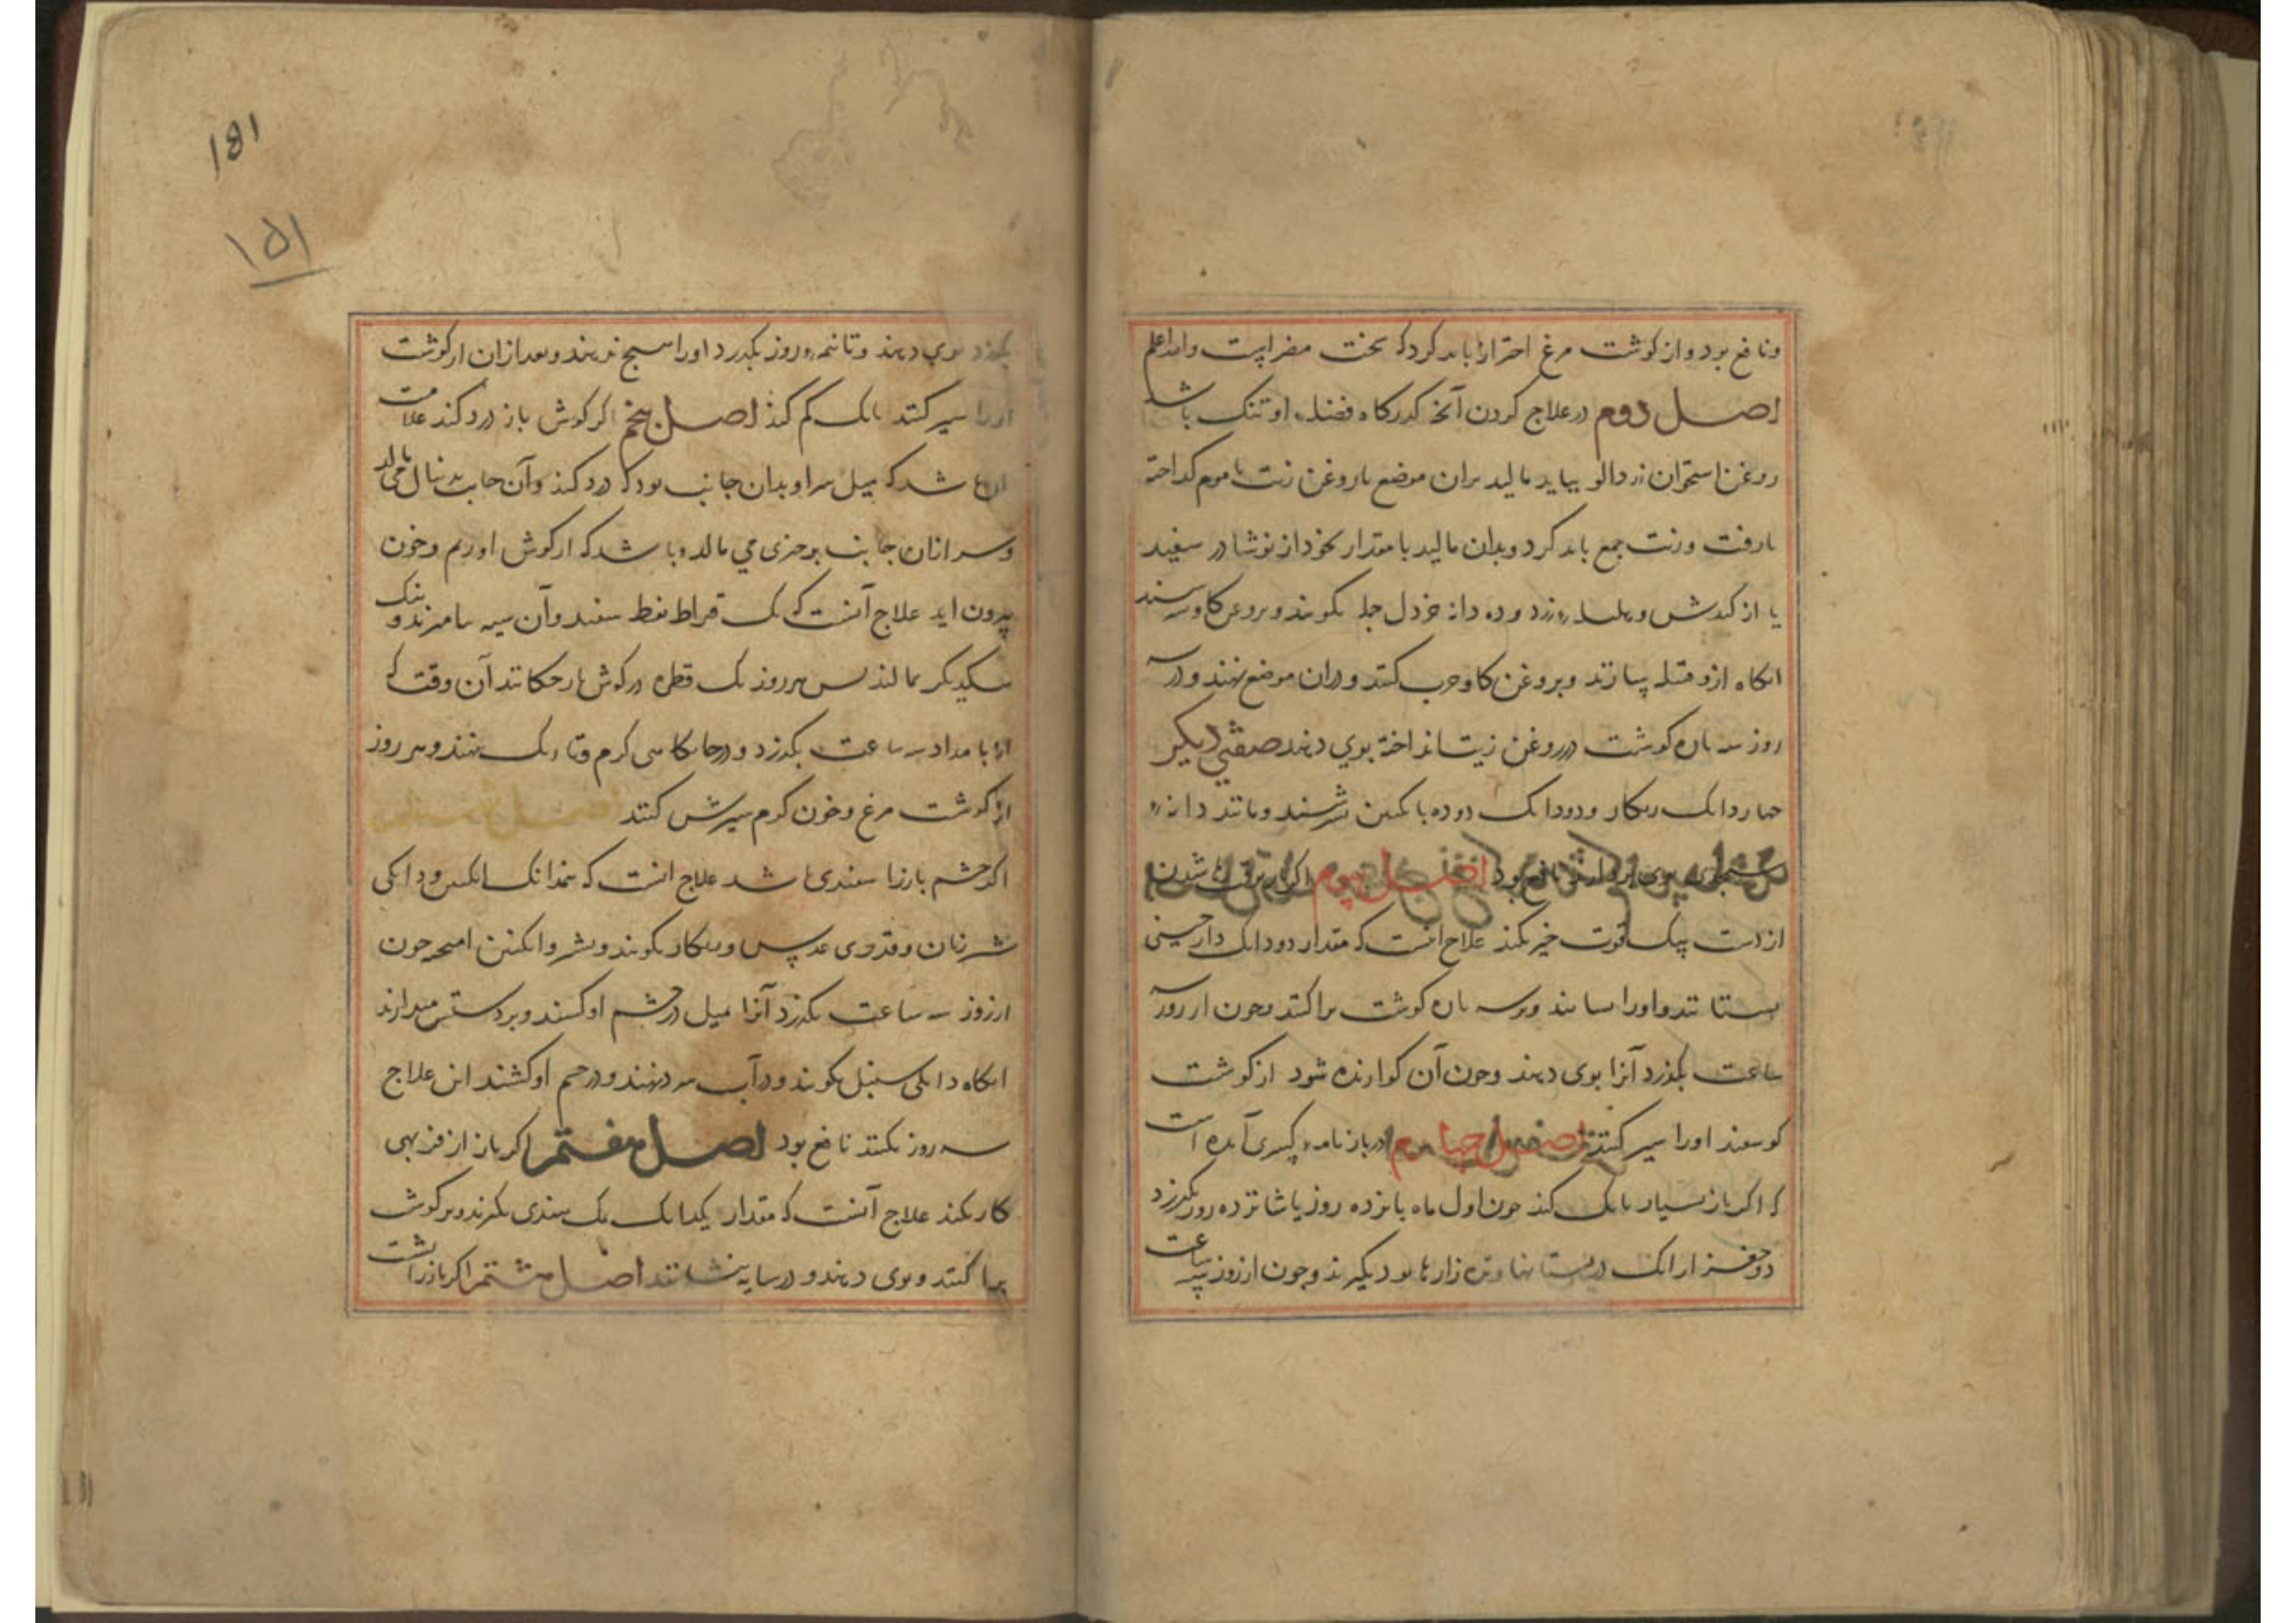 ونافع بود و از کوشت مرغ احتراز باید کرد که سخت مضر است والله اعلم
اصل دوم در علاج کردن آنچ کدرکاه فضله او تنک باشد
روغن استخوان زردالو بیاید مالید بران موضع باروغن زیت باموم کداخته
بازفت و زیت جمع باید کرد و بدان مالید با مقدار نخود از نوشادر سفید
یا از کندش و هلیله زرد و ده دانه خردل جمله بکوبند و بروغن کاو
انکاه ازو فتیله بسازند و بروغن کاو چرب کنند و دران موضع نهند و در سه
روز سه باره کوشت در روغن زیت انداخته بوی دهند صفتی دیکر
بوی نافع بود اصل سیوم اکر باز
از دست بسبک قوت خیز نکند علاج انست که مقدار دودانک دارچینی
بستانند و اورا بسایند و بر سه باره کوشت براکنند و چون از روز سه
ساعت بکذرد آنرا بوی دهند و چون آن کوارنده شود از کوشت
کوسفند اورا سیر کنند اصل چهارم در بازنامه کسری آمده است
که اکر باز بسیار بانک کند چون اول ماه بانزده روز یا شانزده روز بکذرد
در بستانها زارها بود بکیرند و چون از روز سه ساعت
181
۱۵۱
بکذرد بوی دهند و تا نیمه روز بکذرد اورا هیچ ندهند و بعد ازان از کوشت
اورا سیر کنند بانک کم کند اصل پنجم اکر کوش باز درد کند علامت
شد که میل سر او بدان جانب بود که درد کند و آن جانب بدنبال می مالد
و سر ازان جانب بر چیزی می مالد و باشد که از کوش او ریم و خون
بیرون اید علاج آنست که یک قیراط نفط سفید و آن سیه بیامیزند و نیک
بیکدیکر بمالند بس هر روز یک قطره در کوش باز چکانند آن وقت که
از بامداد سه ساعت بکذرد و در جایکاهی کرم و تاریک نهند و هر روز
از کوشت مرغ و خون کرم سیرش کنند اصل ششم
اکر چشم باز را سفیدی باشد علاج انست که نیمدانک انکبین و دانکی
شیر زنان و قدری عدس و بکوبند و بشیر و انکبین امیخته چون
از روز سه ساعت بکذرد آنرا بمیل در چشم او کشند و بر دستش میدارند
انکاه دانکی سنبل بکوبند و در آب نهند و در چشم او کشند این علاج
سه روز بکنند نافع بود اصل هفتم اکر باز از فربهی
کار نکند علاج آنست که مقدار یکدانک نمک هندی بکیرند و بر کوشت
براکنند و بوی دهند و در سایه بنشانند اصل هشتم اکر باز را بشت